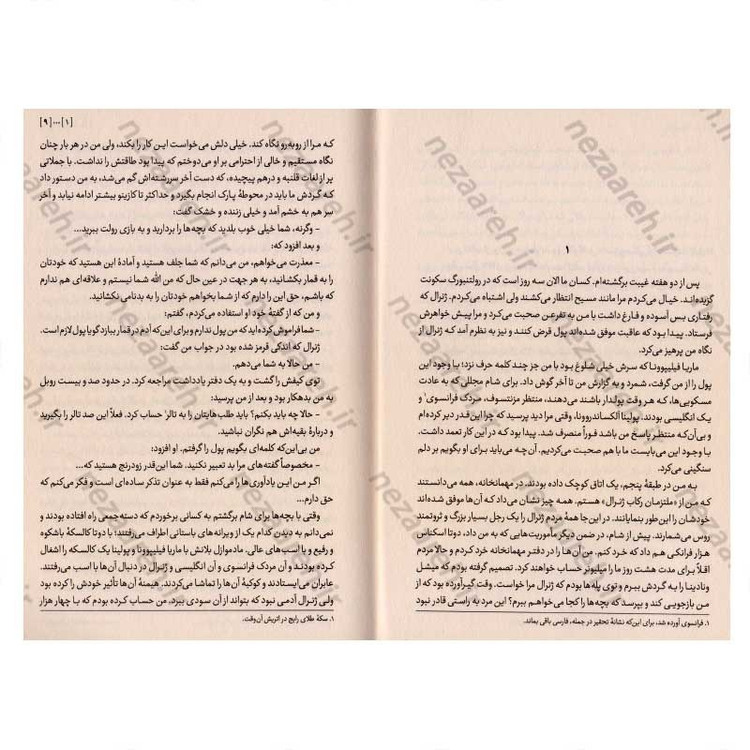 ۱
پس از دو هفته غیبت برگشته‌ام. کسان ما الان سه روز است که در رولتنبورگ سکونت
گزیده‌اند. خیال می‌کردم مرا مانند مسیح انتظار می‌کشند ولی اشتباه می‌کردم. ژنرال که
رفتاری بس آسوده و فارغ داشت با من به تفرعن صحبت می‌کرد و مرا پیش خواهرش
فرستاد. پیدا بود که عاقبت موفق شده‌اند پول قرض کنند و نیز به نظرم آمد که ژنرال از
نگاه من پرهیز می‌کرد.
ماریا فیلیپوونا که سرش خیلی شلوغ بود با من جز چند کلمه حرف نزد؛ با وجود این
پول را از من گرفت، شمرد و به گزارش من تا آخر گوش داد. برای شام مجللی که به عادت
مسکویی‌ها، که هر وقت پولدار باشند می‌دهند، منتظر مزنتسوف، مردک فرانسوی۱ و
یک انگلیسی بودند. پولینا الکساندروونا، وقتی مرا دید پرسید که چرا این‌قدر دیر کرده‌ام
و بی‌آن‌که منتظر پاسخ من باشد فوراً منصرف شد. پیدا بود که در این کار تعمد داشت.
با وجود این می‌بایست ما با هم صحبت می‌کردیم. آن‌چه می‌باید برای او بگویم بر دلم
سنگینی می‌کرد.
به من در طبقهٔ پنجم، یک اتاق کوچک داده بودند. در مهمانخانه، همه می‌دانستند
که من از «ملتزمان رکاب ژنرال» هستم. همه چیز نشان می‌داد که آن‌ها موفق شده‌اند
خودشان را این‌طور بنمایانند. در این‌جا همهٔ مردم ژنرال را یک رجل بسیار بزرگ و ثروتمند
روس می‌شمارند. پیش از شام، در ضمن دیگر مأموریت‌هایی که به من داد، دوتا اسکناس
هزار فرانکی هم داد که خرد کنم. من آن‌ها را در دفتر مهمانخانه خرد کردم و حالا مردم
اقلاً برای مدت هشت روز ما را میلیونر حساب خواهند کرد. تصمیم گرفته بودم که میشل
و نادینا را به گردش ببرم و توی پله‌ها بودم که ژنرال مرا خواست. وقت گیرآورده بود که از
من بازجویی کند و بپرسد که بچه‌ها را کجا می‌خواهم ببرم؟ این مرد به راستی قادر نبود
۱. فرانسوی آورده شد، برای این‌که نشانهٔ تحقیر در جمله، فارسی باقی بماند.
[۱]...[۹]
که مرا از روبه‌رو نگاه کند. خیلی دلش می‌خواست این کار را بکند، ولی من در هر بار چنان
نگاه مستقیم و خالی از احترامی بر او می‌دوختم که پیدا بود طاقتش را نداشت. با جملاتی
پر از لغات قلنبه و درهم پیچیده، که دست آخر سررشته‌اش گم می‌شد، به من دستور داد
که گردش ما باید در محوطهٔ پارک انجام بگیرد و حداکثر تا کازینو بیشتر ادامه نیابد و آخر
سر هم به خشم آمد و خیلی زننده و خشک گفت:
– وگرنه، شما خیلی خوب بلدید که بچه‌ها را بردارید و به بازی رولت ببرید...
و بعد افزود که:
– معذرت می‌خواهم، من می‌دانم که شما جلف هستید و آمادهٔ این هستید که خودتان
را به قمار بکشانید، به هر جهت در عین حال که من الله شما نیستم و علاقه‌ای هم ندارم
که باشم، حق این را دارم که از شما بخواهم خودتان را به بدنامی نکشانید.
و من که از گفتهٔ خود او استفاده می‌کردم، گفتم:
– شما فراموش کرده‌اید که من پول ندارم و برای این‌که آدم در قمار ببازد گویا پول لازم است.
ژنرال که اندکی قرمز شده بود در جواب من گفت:
– من حالا به شما می‌دهم.
توی کیفش را گشت و به یک دفتر یادداشت مراجعه کرد. در حدود صد و بیست روبل
به من بدهکار بود و بعد از من پرسید:
– حالا چه باید بکنم؟ باید طلب‌هایتان را به تالر۱ حساب کرد. فعلاً این صد تالر را بگیرید
و دربارهٔ بقیه‌اش هم نگران نباشید.
من بی‌این‌که کلمه‌ای بگویم پول را گرفتم. او افزود:
– مخصوصاً گفته‌های مرا بد تعبیر نکنید. شما این‌قدر زودرنج هستید که...
اگر من این یادآوری‌ها را می‌کنم فقط به عنوان تذکر ساده‌ای است و فکر می‌کنم که
حق دارم...
وقتی با بچه‌ها برای شام برگشتم به کسانی برخوردم که دسته‌جمعی راه افتاده بودند و
نمی‌دانم به دیدن کدام یک از ویرانه‌های باستانی اطراف می‌رفتند؛ با دوتا کالسکهٔ باشکوه
و رفیع و با اسب‌های عالی. مادموازل بلانش با ماریا فیلیپوونا و پولینا یک کالسکه را اشغال
کرده بودند و آن مردک فرانسوی و آن انگلیسی و ژنرال در دنبال آن‌ها با اسب می‌رفتند.
عابران می‌ایستادند و کوکبهٔ آن‌ها را تماشا می‌کردند. هیمنهٔ آن‌ها تأثیر خودش را کرده بود
ولی ژنرال آدمی نبود که بتواند از آن سودی ببرد. من حساب کرده بودم که با چهار هزار
۱. سکهٔ طلای رایج در اتریش آن‌وقت.
nezaareh.ir